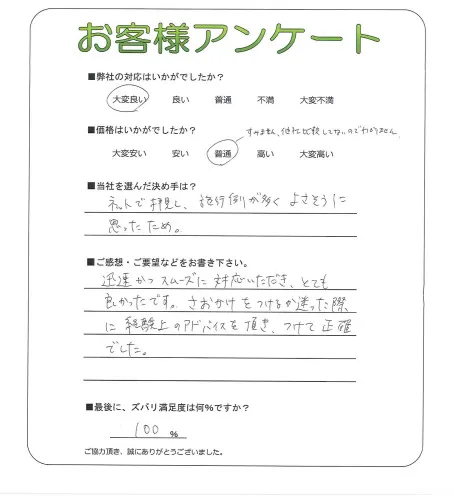 お客様アンケート
■弊社の対応はいかがでしたか？
大変良い 良い 普通 不満 大変不満
■価格はいかがでしたか？
すみません、他社比較してないのでわかりません。
大変安い 安い 普通 高い 大変高い
■当社を選んだ決め手は？
ネットで拝見し、施行例が多く よさそうに
思ったため。
■ご感想・ご要望などをお書き下さい。
迅速かつスムーズに対応いただき、とても
良かったです。さおかけをつけるか迷った際、
に経験上のアドバイスを頂き、つけて正確
でした。
■最後に、ズバリ満足度は何％ですか？
100 %
ご協力頂き、誠にありがとうございました。